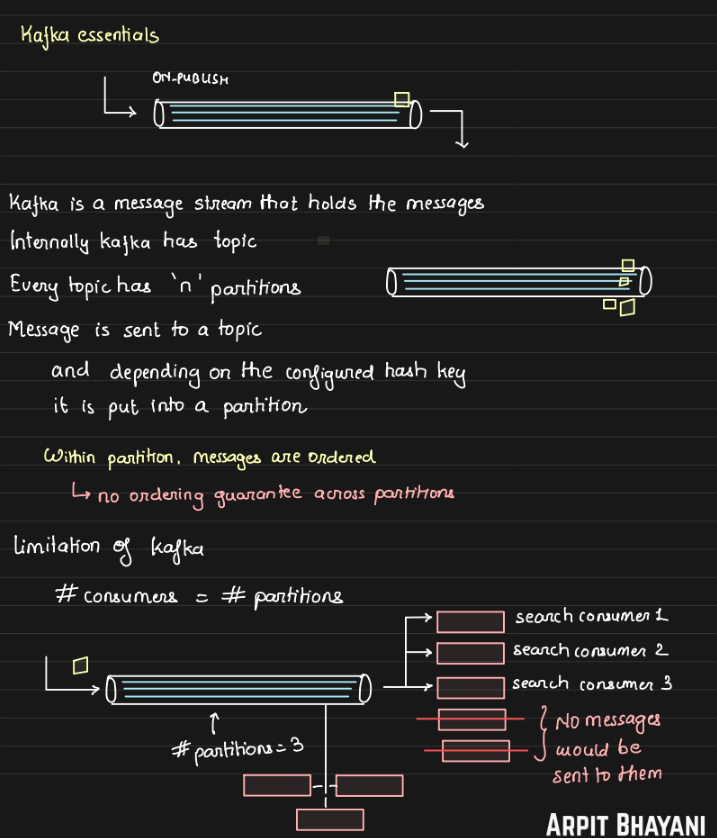 Kafka essentials
ON-PUBLISH
Kafka is a message stream that holds the messages
Internally kafka has topic
Every topic has 'n' partitions
Message is sent to a topic
and depending on the configured hash key
it is put into a partition
Within partition, messages are ordered
↳ no ordering guarantee across partitions
Limitation of kafka
# consumers = # partitions
search consumer 1
search consumer 2
search consumer 3
# partitions = 3
No messages
would be
sent to them
ARPIT BHAYANI